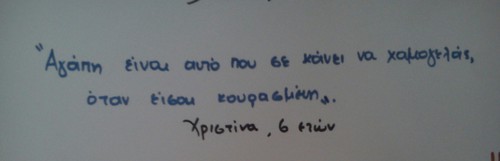 "Αγάπη είναι αυτό που σε κάνει να χαμογελάς,
όταν είσαι κουρασμένη".
Χριστίνα, 6 ετών